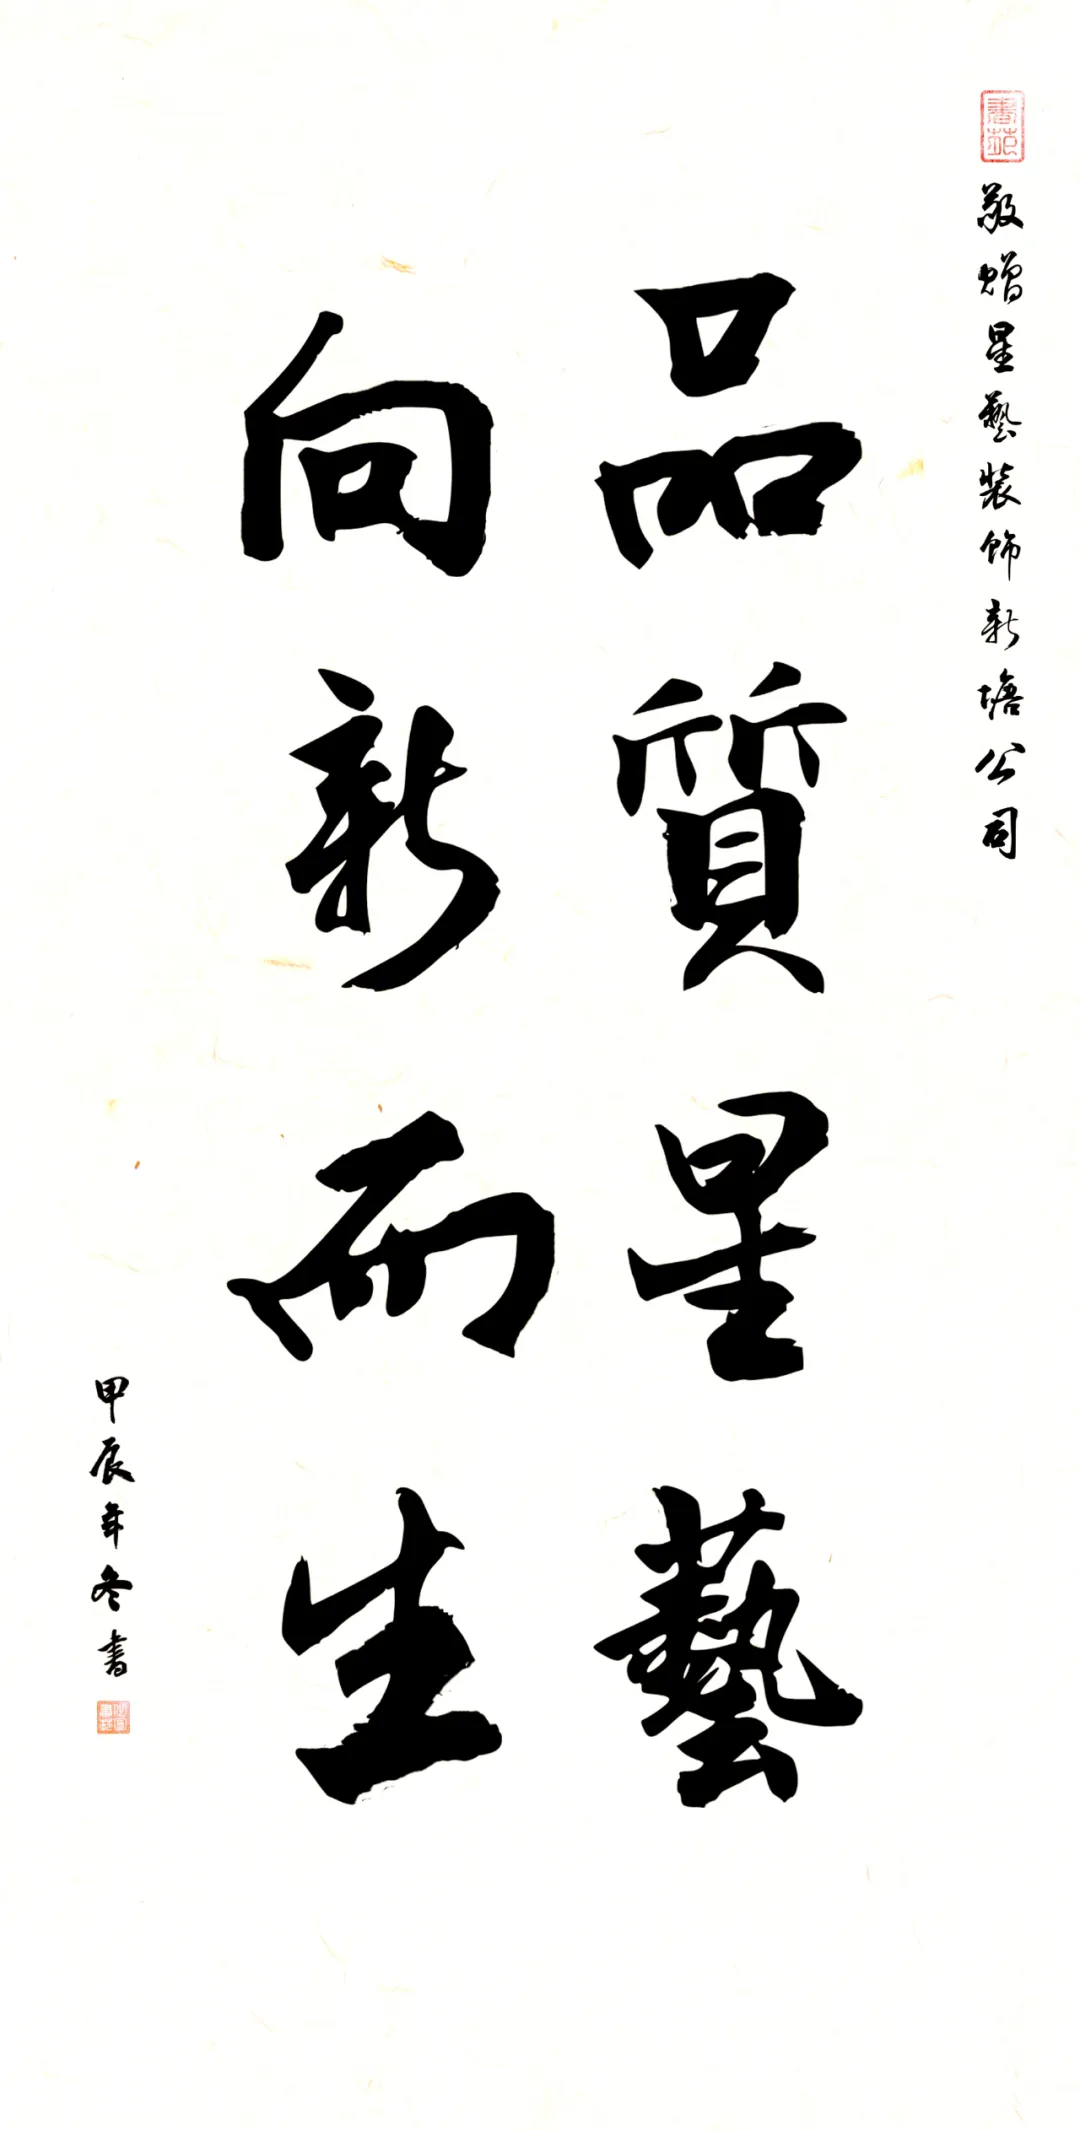 書苑
敬贈星藝装飾新塘公司
品質星藝
向新而生
甲辰年冬書